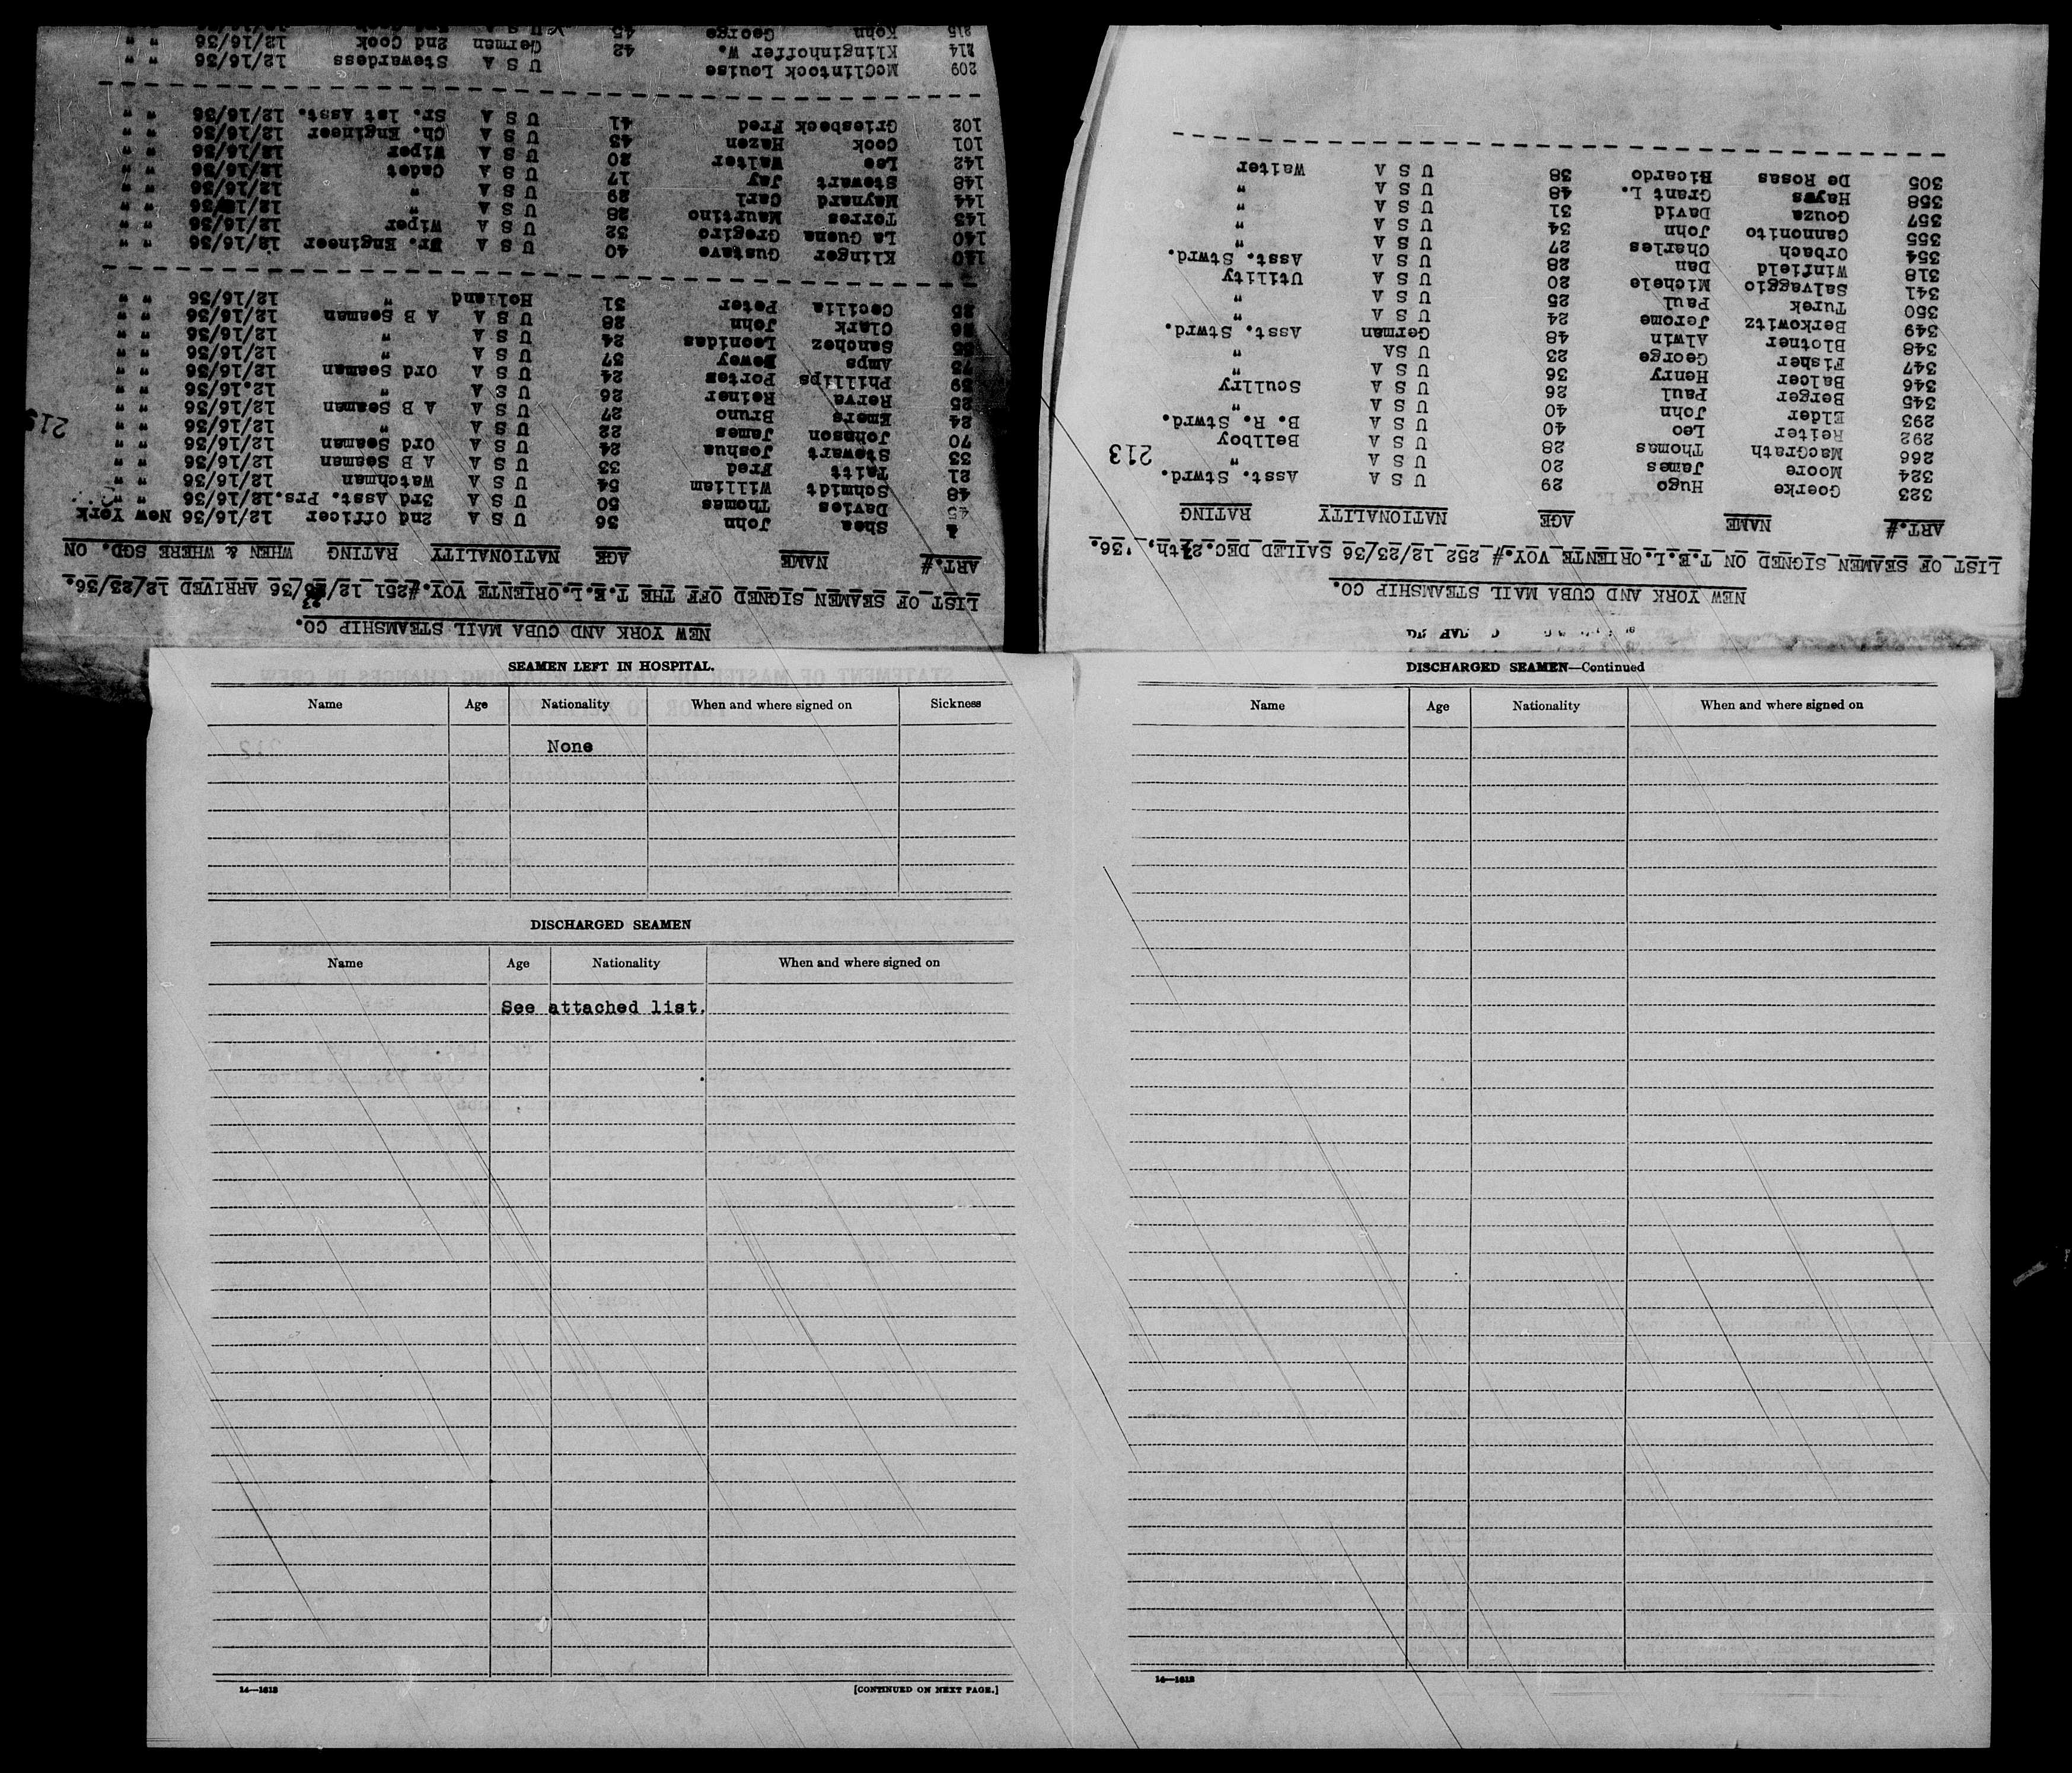 NEW YORK AND CUBA MAIL STEAMSHIP CO.
LIST OF SEAMEN SIGNED OFF THE T.E.L.ORIENTE VOY.#251 12/23/36 ARRIVED 12/23/36.
ART.# NAME AGE NATIONALITY RATING WHEN & WHERE SGD. ON
4 Shea John 36 U S A 2nd Officer 12/16/36 New York
45 Davies Thomas 50 U S A 3rd Asst. Prs. 12/16/36 " "
48 Schmidt William 54 U S A Watchman 12/16/36 " "
21 Taitt Fred 33 U S A A B Seaman 12/16/36 " "
33 Stewart Joshua 24 U S A Ord Seaman 12/16/36 " "
70 Johnson James 22 U S A " 12/16/36 " "
24 Emers Bruno 27 U S A A B Seaman 12/16/36 " "
25 Rerva Reiner 26 U S A " 12.16/36 " "
39 Phillips Porter 24 U S A Ord Seaman 12/16/36 " "
73 Amps Dewey 37 U S A " 12/16/36 " "
Sanchez Leonidas 24 U S A " 12/16/36 " "
26 Clark John 28 U S A A B Seaman 12/16/36 " "
35 Cecilia Peter 31 Holland " 12/16/36 " "
140 Klinger Gustave 40 U S A Jr. Engineer 12/16/36 " "
140 La Guena Gregiro 32 U S A Wiper 12/16/36 " "
143 Torres Maurtino 28 U S A " 12/16/36 " "
144 Maynard Carl 29 U S A " 12/16/36 " "
148 Stewart Jay 17 U S A Cadet 12/16/36 " "
142 Lee Walter 20 U S A Wiper 12/16/36 " "
101 Cook Hazen 43 U S A Ch. Engineer 12/16/36 " "
102 Griesbeck Fred 41 U S A Sr. 1st Asst. 12/16/36 " "
209 McClintock Louise U S A Stewardess 12/16/36 " "
214 Klinginhoffer W. 42 German 2nd Cook 12/16/36 " "
215 Kohn George 45 U S A
NEW YORK AND CUBA MAIL STEAMSHIP CO.
LIST OF SEAMEN SIGNED ON T.E.L.ORIENTE VOY.# 252 12/23/36 SAILED DEC.27th, '36.
ART.# NAME AGE NATIONALITY RATING
323 Goerke Hugo 29 U S A Asst. Stwrd.
324 Moore James 20 U S A "
266 MacGrath Thomas 28 U S A Bellboy
292 Reiter Leo 40 U S A B. R. Stwrd.
293 Elder John 40 U S A "
345 Berger Paul 26 U S A Scullry
346 Balcer Henry 36 U S A "
347 Fisher George 23 U SA "
348 Blotner Alwin 48 German Asst. Stwrd.
349 Berkowitz Jerome 24 U S A "
350 Turek Paul 25 U S A "
341 Salvaggio Michele 20 U S A Utility
318 Winfield Dan 28 U S A Asst. Stwrd.
354 Orbach Charles 27 U S A "
355 Cannonito John 34 U S A "
357 Gouza David 31 U S A "
358 Hayes Grant L. 48 U S A "
305 De Rosas Ricardo 38 U S A Waiter
213
SEAMEN LEFT IN HOSPITAL.
Name Age Nationality When and where signed on Sickness
None
DISCHARGED SEAMEN
Name Age Nationality When and where signed on
See attached list.
14—1613
[CONTINUED ON NEXT PAGE.]
DISCHARGED SEAMEN—Continued
Name Age Nationality When and where signed on
14—1613